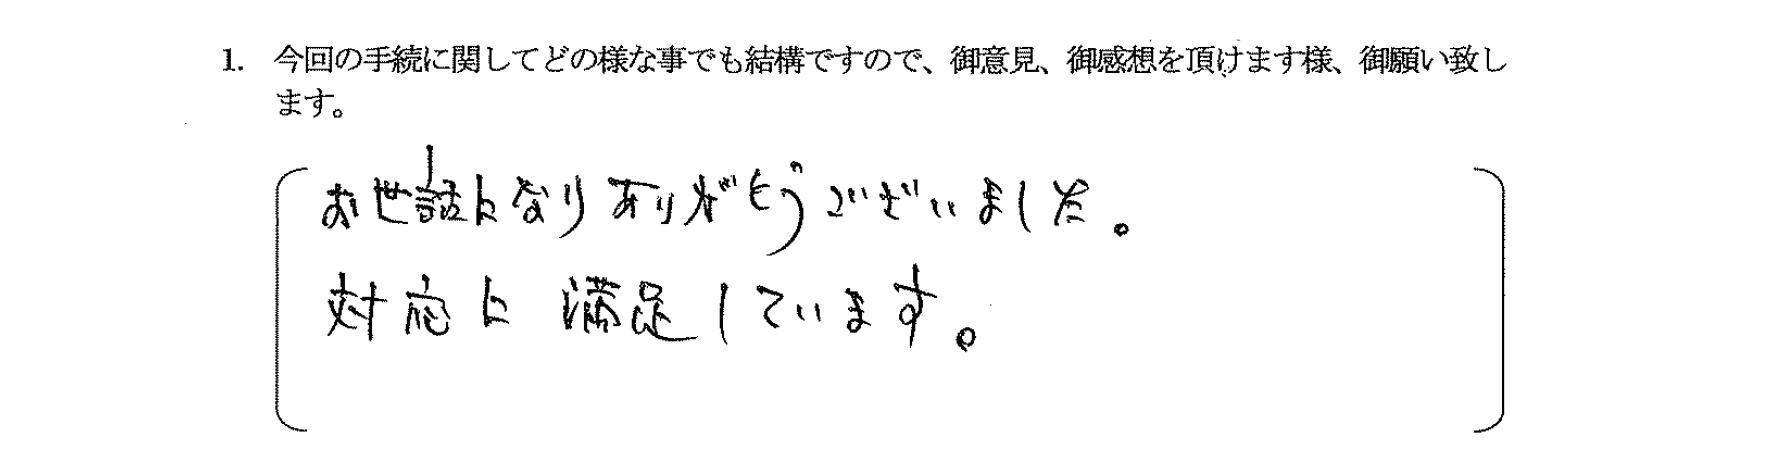 1. 今回の手続に関してどの様な事でも結構ですので、御意見、御感想を頂けます様、御願い致し
ます。
お世話になりありがとうございました。
対応に満足しています。